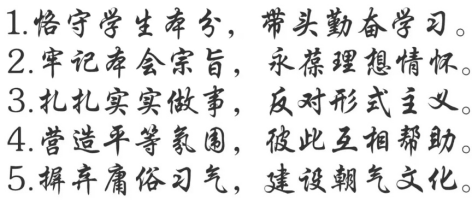 1.恪守学生本分，带头勤奋学习。
2.牢记本会宗旨，永葆理想情怀。
3.扎扎实实做事，反对形式主义。
4.营造平等氛围，彼此互相帮助。
5.摒弃庸俗习气，建设朝气文化。